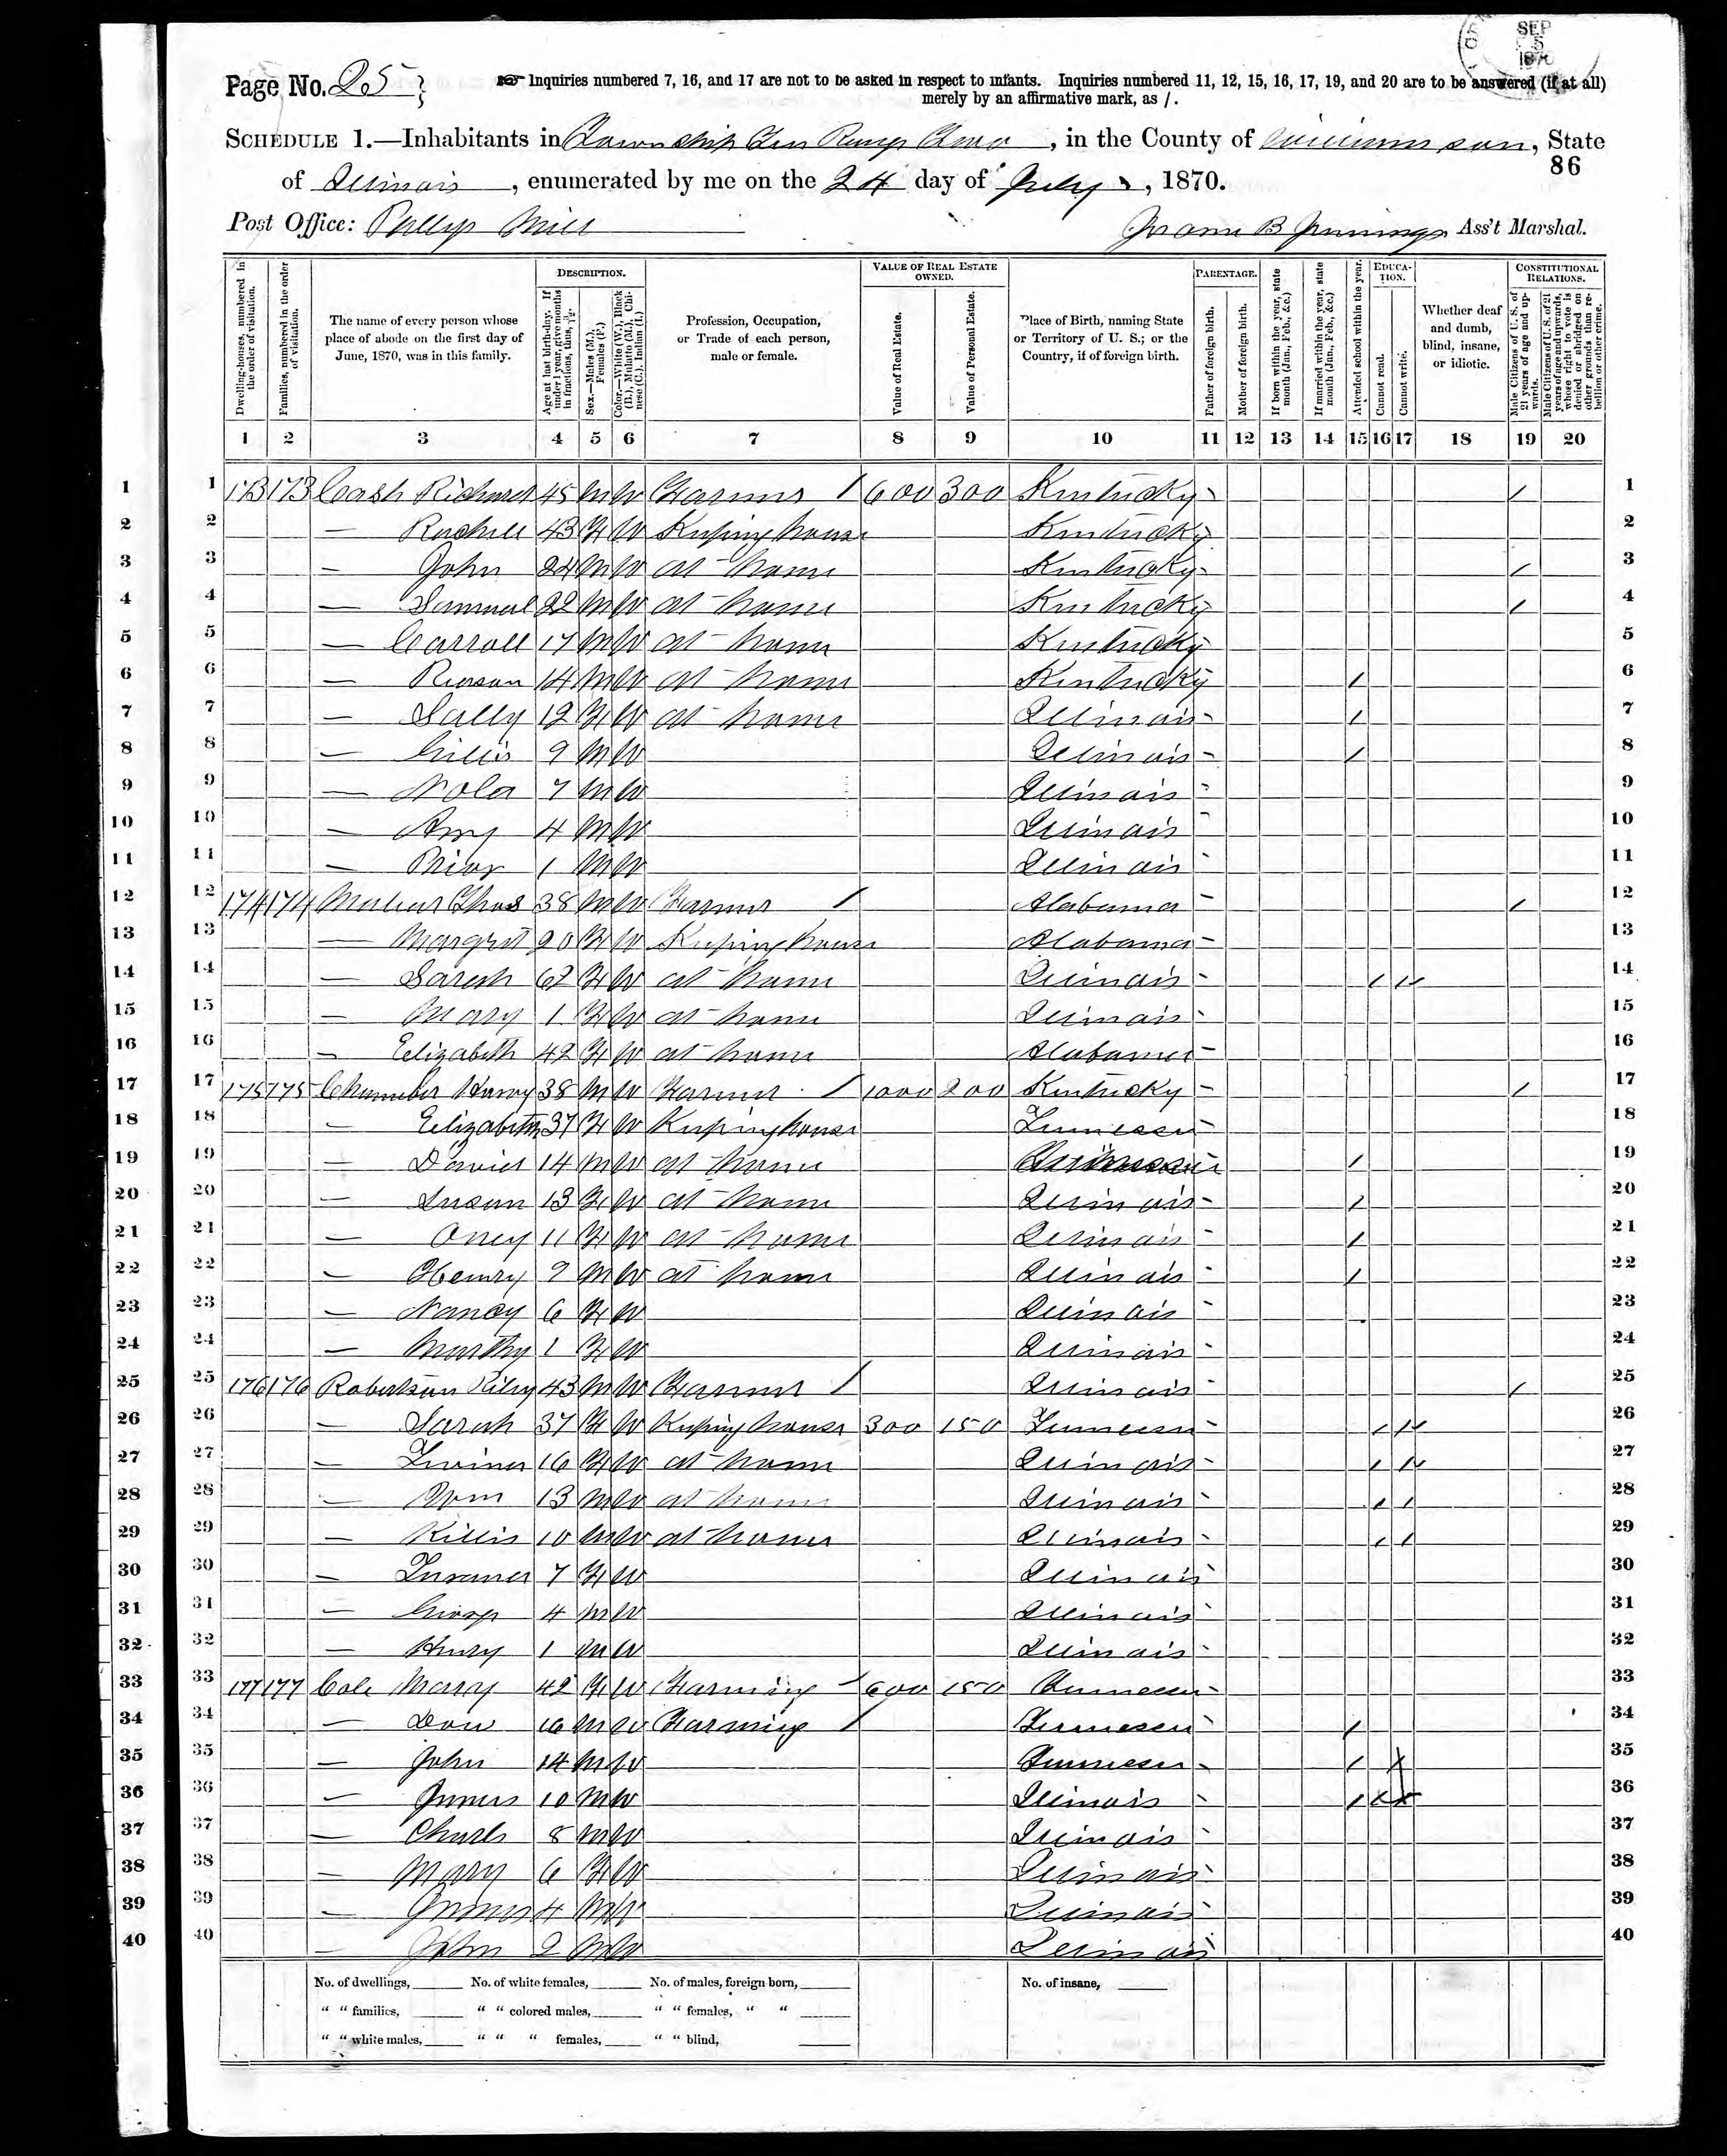 SEP 5 1870
Page No. 25
Inquiries numbered 7, 16, and 17 are not to be asked in respect to infants. Inquiries numbered 11, 12, 15, 16, 17, 19, and 20 are to be answered (if at all)
merely by an affirmative mark, as /.
SCHEDULE 1.—Inhabitants in Township Ten Range, in the County of Williamson, State
86
of Illinois, enumerated by me on the 24 day of July, 1870.
Post Office: Mill B Jennings Ass't Marshal.
Dwelling-houses, numbered in the order of visitation.
Families, numbered in the order of visitation.
The name of every person whose place of abode on the first day of June, 1870, was in this family.
DESCRIPTION.
Age at last birth-day. If under 1 year, give months in fractions, thus, 3/12.
Sex.—Males (M.), Females (F.)
Color.—White (W.), Black (B.), Mulatto (M.), Chinese (C.), Indian (I.)
Profession, Occupation, or Trade of each person, male or female.
VALUE OF REAL ESTATE OWNED.
Value of Real Estate.
Value of Personal Estate.
Place of Birth, naming State or Territory of U. S.; or the Country, if of foreign birth.
PARENTAGE.
Father of foreign birth.
Mother of foreign birth.
If born within the year, state month (Jan., Feb., &c.)
If married within the year, state month (Jan., Feb., &c.)
Attended school within the year.
EDUCATION.
Cannot read.
Cannot write.
Whether deaf and dumb, blind, insane, or idiotic.
CONSTITUTIONAL RELATIONS.
Male Citizens of U. S. of 21 years of age and upwards.
Male Citizens of U. S. of 21 years of age and upwards, whose right to vote is denied or abridged on other grounds than rebellion or other crime.
1 2 3 4 5 6 7 8 9 10 11 12 13 14 15 16 17 18 19 20
1 1 173 173 Cash Richard 45 M W Farmer / 600 300 Kentucky / 1
2 2 — Rachell 43 F W Keeping house Kentucky 2
3 3 — John 24 M W at home Kentucky / 3
4 4 — Samuel 22 M W at home Kentucky / 4
5 5 — Carroll 17 M W at home Kentucky 5
6 6 — Reason 14 M W at home Kentucky / 6
7 7 — Sally 12 F W at home Illinois / 7
8 8 — 9 M W Illinois / 8
9 9 — Nola 7 M W Illinois 9
10 10 — Amy 4 M W Illinois 10
11 11 — Prior 1 M W Illinois 11
12 12 174 174 Thos 38 M W Farmer / Alabama / 12
13 13 — Margret 20 F W Keeping house Alabama 13
14 14 — Sarah 62 F W at home Illinois / / 14
15 15 — Mary 1 F W at home Illinois 15
16 16 — Elizabeth 42 F W at home Alabama 16
17 17 175 175 38 M W Farmer / 1000 200 Kentucky / 17
18 18 — Elizabeth 37 F W Keeping house Tennessee 18
19 19 — David 14 M W at home / 19
20 20 — Susan 13 F W at home Illinois / 20
21 21 — Oney 11 F W at home Illinois / 21
22 22 — Henry 9 M W at home Illinois / 22
23 23 — Nancy 6 F W Illinois 23
24 24 — Marthy 1 F W Illinois 24
25 25 176 176 Robertson Riley 43 M W Farmer / Illinois / 25
26 26 — Sarah 37 F W Keeping house 300 150 Tennessee / / 26
27 27 — 16 F W at home Illinois / / 27
28 28 — Wm 13 M W at home Illinois / / 28
29 29 — Killis 10 M W at home Illinois / / 29
30 30 — 7 F W Illinois 30
31 31 — 4 M W Illinois 31
32 32 — Henry 1 M W Illinois 32
33 33 177 177 Cole Mary 42 F W Farming / 600 150 Tennessee 33
34 34 — 16 M W Farming / Tennessee / 34
35 35 — John 14 M W Tennessee / X 35
36 36 — James 10 M W Illinois / X X 36
37 37 — Charls 8 M W Illinois 37
38 38 — Mary 6 F W Illinois 38
39 39 — 4 M W Illinois 39
40 40 — John 2 M W Illinois 40
No. of dwellings, No. of white females, No. of males, foreign born, No. of insane,
" " families, " " colored males, " " females, " "
" " white males, " " " females, " " blind,